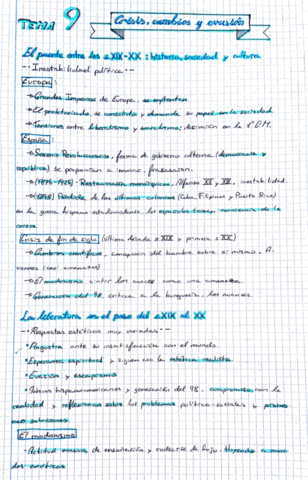 TEMA 9 Crisis, cambios y evasión
El puente entre los s.XIX-XX: historia, sociedad y cultura
-- Inestabilidad política --
Europa:
→ Grandes Imperios de Europa, se enfrentan
→ El proletariado se consolida y demanda su papel en la sociedad
→ Tensiones entre liberalismo y socialismo; derivación en la 1ª G.M.
España:
→ Sexenio Revolucionario, forma de gobierno alterna (democracia y
república) se proponían a innovar, fracasaron.
→ (1876-1926) - Restauración monárquica, Alfonso XII y XIII, inestabilidad.
→ (1898) Pérdida de las últimas colonias (Cuba, Filipinas y Puerto Rico)
en la guerra hispano estadounidense los españoles toman conciencia de la
Crisis de fin de siglo (última década s XIX y primera s XX)
→ Cambios científicos, concepción del hombre sobre sí mismo. A.
→ El modernismo
→ Generación del 98, crítica a la burguesía, los
La literatura en el paso del s.XIX al XX
-- Respuestas estéticas muy variadas --
• Angustia ante su insatisfacción con el mundo.
• Esperanza espiritual y siguen con la estética realista
• Evasión y escapismo
• hispanoamericanos y generación del 98, compromiso con la
realidad y reflexiones sobre los problemas político-sociales y
El modernismo
- Actitud evasiva, de ensoñación y rodearse de lujo. Huyendo a
dos exóticos